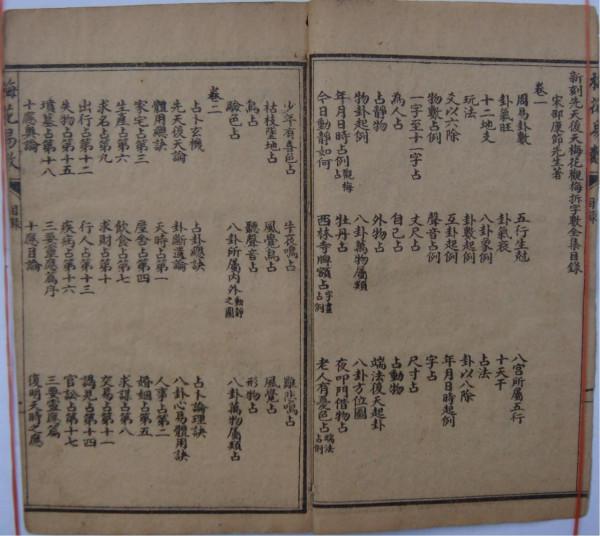 梅花易數
目錄
新刻先天後天梅花觀梅拆字數全集目錄
宋邵康節先生著
卷一
周易卦數 五行生尅 八宮所屬五行
卦氣旺 卦氣衰 十天干
十二地支 八卦象例 占法
玩法 卦數起例 卦以八除
爻以六除 互卦起例 年月日時起例
物數占例 聲音占例 字占
一字至十一字占 丈尺占 尺寸占
為人占 自己占 占動物
占靜物 外物占 端法後天起卦
物卦起例 八卦萬物屬類 八卦方位圖
年月日時占例觀梅 牡丹占 夜叩門借物占
今日動靜如何 西林寺牌額占字畫占例 老人有憂色占端法占例
少年有喜色占 牛夜鳴占 雞悲鳴占
枯枝墜地占 風覺鳥占 風覺占
鳥占 聽聲音占 形物占
驗色占 八卦所屬內外動靜之圖 八卦萬物屬類占
卷二
占卜玄機 占卦總訣 占卜論理訣
先天後天論 卦斷遺論 八卦心易體用訣
體用總訣 天時占第一 人事占第二
家宅占第三 屋舍占第四 婚姻占第五
生產占第六 飲食占第七 求謀占第八
求名占第九 求財占第十 交易占第十一
出行占第十二 行人占第十三 謁見占第十四
失物占第十五 疾病占第十六 官訟占第十七
墳墓占第十八 三要靈應篇序 三要靈應篇
十應奧論 十應目論 復明天時之應
梅花易數
目錄